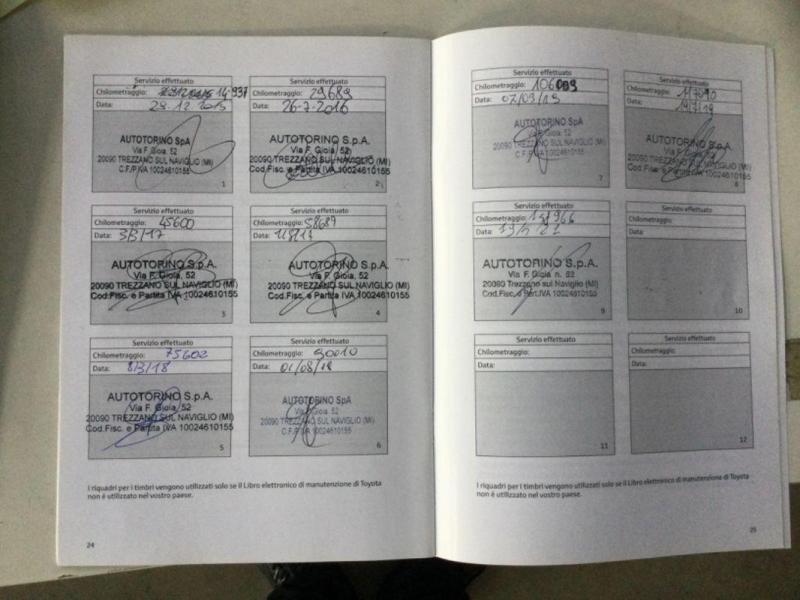 Servizio effettuato
Chilometraggio: 14.937
Data: 29.12.2015
AUTOTORINO SpA
Via F. Gioia, 52
20090 TREZZANO SUL NAVIGLIO (MI)
C.F./P.IVA 10024610155
1
Servizio effettuato
Chilometraggio: 29689
Data: 26-7-2016
AUTOTORINO S.p.A.
Via F. Gioia, 52
20090 TREZZANO SUL NAVIGLIO (MI)
Cod.Fisc. e Partita IVA 10024610155
2
Servizio effettuato
Chilometraggio: 45600
Data: 3/3/17
AUTOTORINO S.p.A.
Via F. Gioia, 52
20090 TREZZANO SUL NAVIGLIO (MI)
Cod.Fisc. e Partita IVA 10024610155
3
Servizio effettuato
Chilometraggio: 58689
Data:
AUTOTORINO S.p.A.
Via F. Gioia, 52
20090 TREZZANO SUL NAVIGLIO (MI)
Cod.Fisc. e Partita IVA 10024610155
4
Servizio effettuato
Chilometraggio: 75602
Data: 8/3/18
AUTOTORINO S.p.A.
Via F. Gioia, 52
20090 TREZZANO SUL NAVIGLIO (MI)
Cod.Fisc. e Partita IVA 10024610155
5
Servizio effettuato
Chilometraggio: 90010
Data: 01/08/18
AUTOTORINO SpA
Via F. Gioia, 52
20090 TREZZANO SUL NAVIGLIO (MI)
C.F./P.IVA 10024610155
6
I riquadri per i timbri vengono utilizzati solo se il Libro elettronico di manutenzione di Toyota
non è utilizzato nel vostro paese.
24
Servizio effettuato
Chilometraggio: 106009
Data: 07/03/19
AUTOTORINO SpA
Via F. Gioia, 52
20090 TREZZANO SUL NAVIGLIO (MI)
C.F./P.IVA 10024610155
7
Servizio effettuato
Chilometraggio: 117090
Data: 19/7/19
AUTOTORINO S.p.A.
Via F. Gioia, 52
20090 TREZZANO SUL NAVIGLIO (MI)
Cod.Fisc. e Partita IVA 10024610155
8
Servizio effettuato
Chilometraggio:
Data:
AUTOTORINO S.p.A.
Via F. Gioia n. 52
20090 Trezzano sul Naviglio (MI)
Cod.Fisc. e Part.IVA 10024610155
9
Servizio effettuato
Chilometraggio:
Data:
10
Servizio effettuato
Chilometraggio:
Data:
11
Servizio effettuato
Chilometraggio:
Data:
12
I riquadri per i timbri vengono utilizzati solo se il Libro elettronico di manutenzione di Toyota
non è utilizzato nel vostro paese.
25